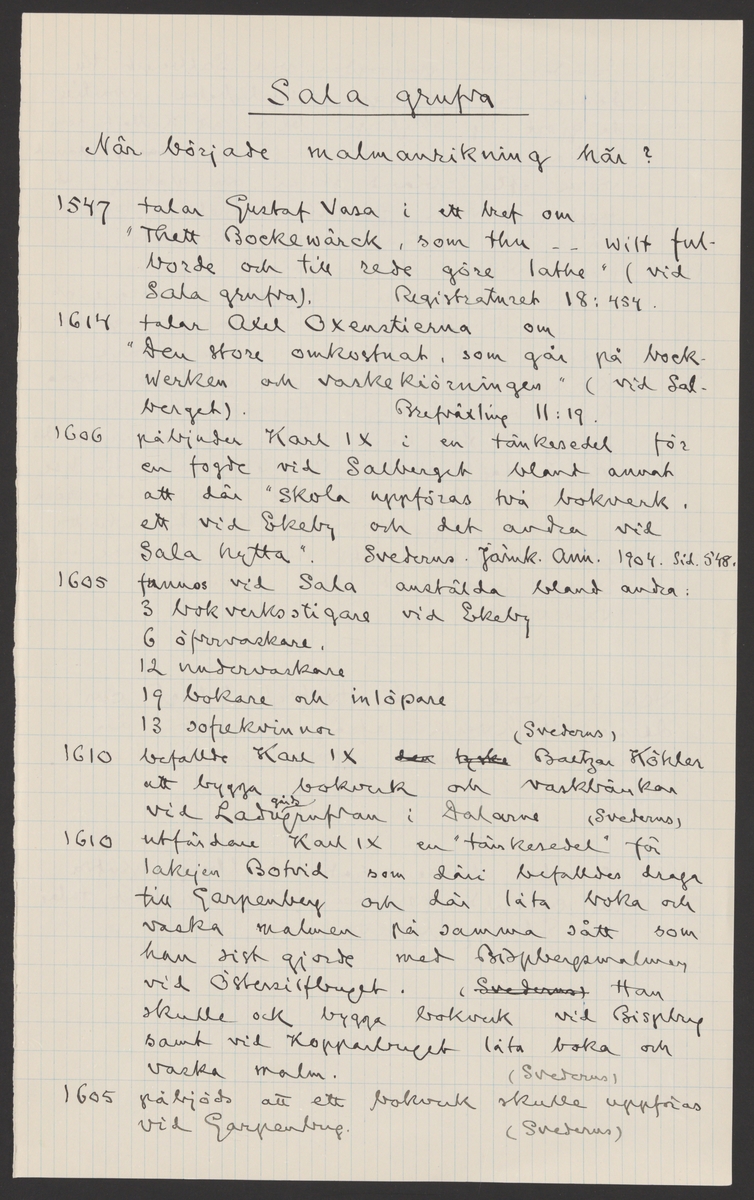 Sala grufva
När började malmanrikning här?
1547 talar Gustaf Vasa i ett bref om
"Thett Bockewärck, som thu -- wilt ful-
borde och till rede göre lathe" (vid
Sala grufva). Registraturet 18:454.
1614 talar Axel Oxenstierna om
"Den store omkostnat, som går på bock-
werken och vaskekiörningen" (vid Sal-
berget). Brefväxling II:19.
1606 påbjuder Karl IX i en tänkesedel för
en fogde vid Salberget bland annat
att där "skola uppföras två bokverk,
ett vid Ekeby och det andra vid
Sala hytta". Svederus. Järnk. Ann. 1904. Sid. 548.
1605 funnos vid Sala anstälda bland andra:
3 bokverksstigare vid Ekeby
6 öfvervaskare,
12 undervaskare
19 bokare och inlöpare
13 sofrekvinnor (Svederus)
1610 befallde Karl IX den tyske Baltzar Köhler
att bygga bokverk och vaskbänkar
vid Ladugårdsgrufvan i Dalarne (Svederus)
1610 utfärdade Karl IX en "tänkesedel" för
lakejen Botvid som däri befalldes draga
till Garpenberg och där låta boka och
vaska malmen på samma sätt som
han sist gjorde med Bispbergsmalmen
vid Östersilfberget. (Svederus) Han
skulle ock bygga bokverk vid Bispberg
samt vid Kopparberget låta boka och
vaska malm. (Svederus)
1605 påbjöds att ett bokverk skulle uppföras
vid Garpenberg. (Svederus)